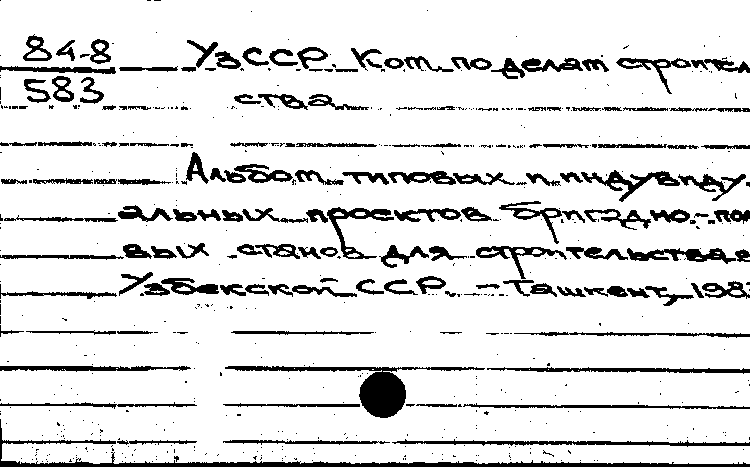 84-8
583
УзССР. Ком. по делам строитель
ства.
Альбом типовых и индивиду-
альных проектов бригадно-поле
вых станов для строительства в
Узбекской ССР. - Ташкент, 1983